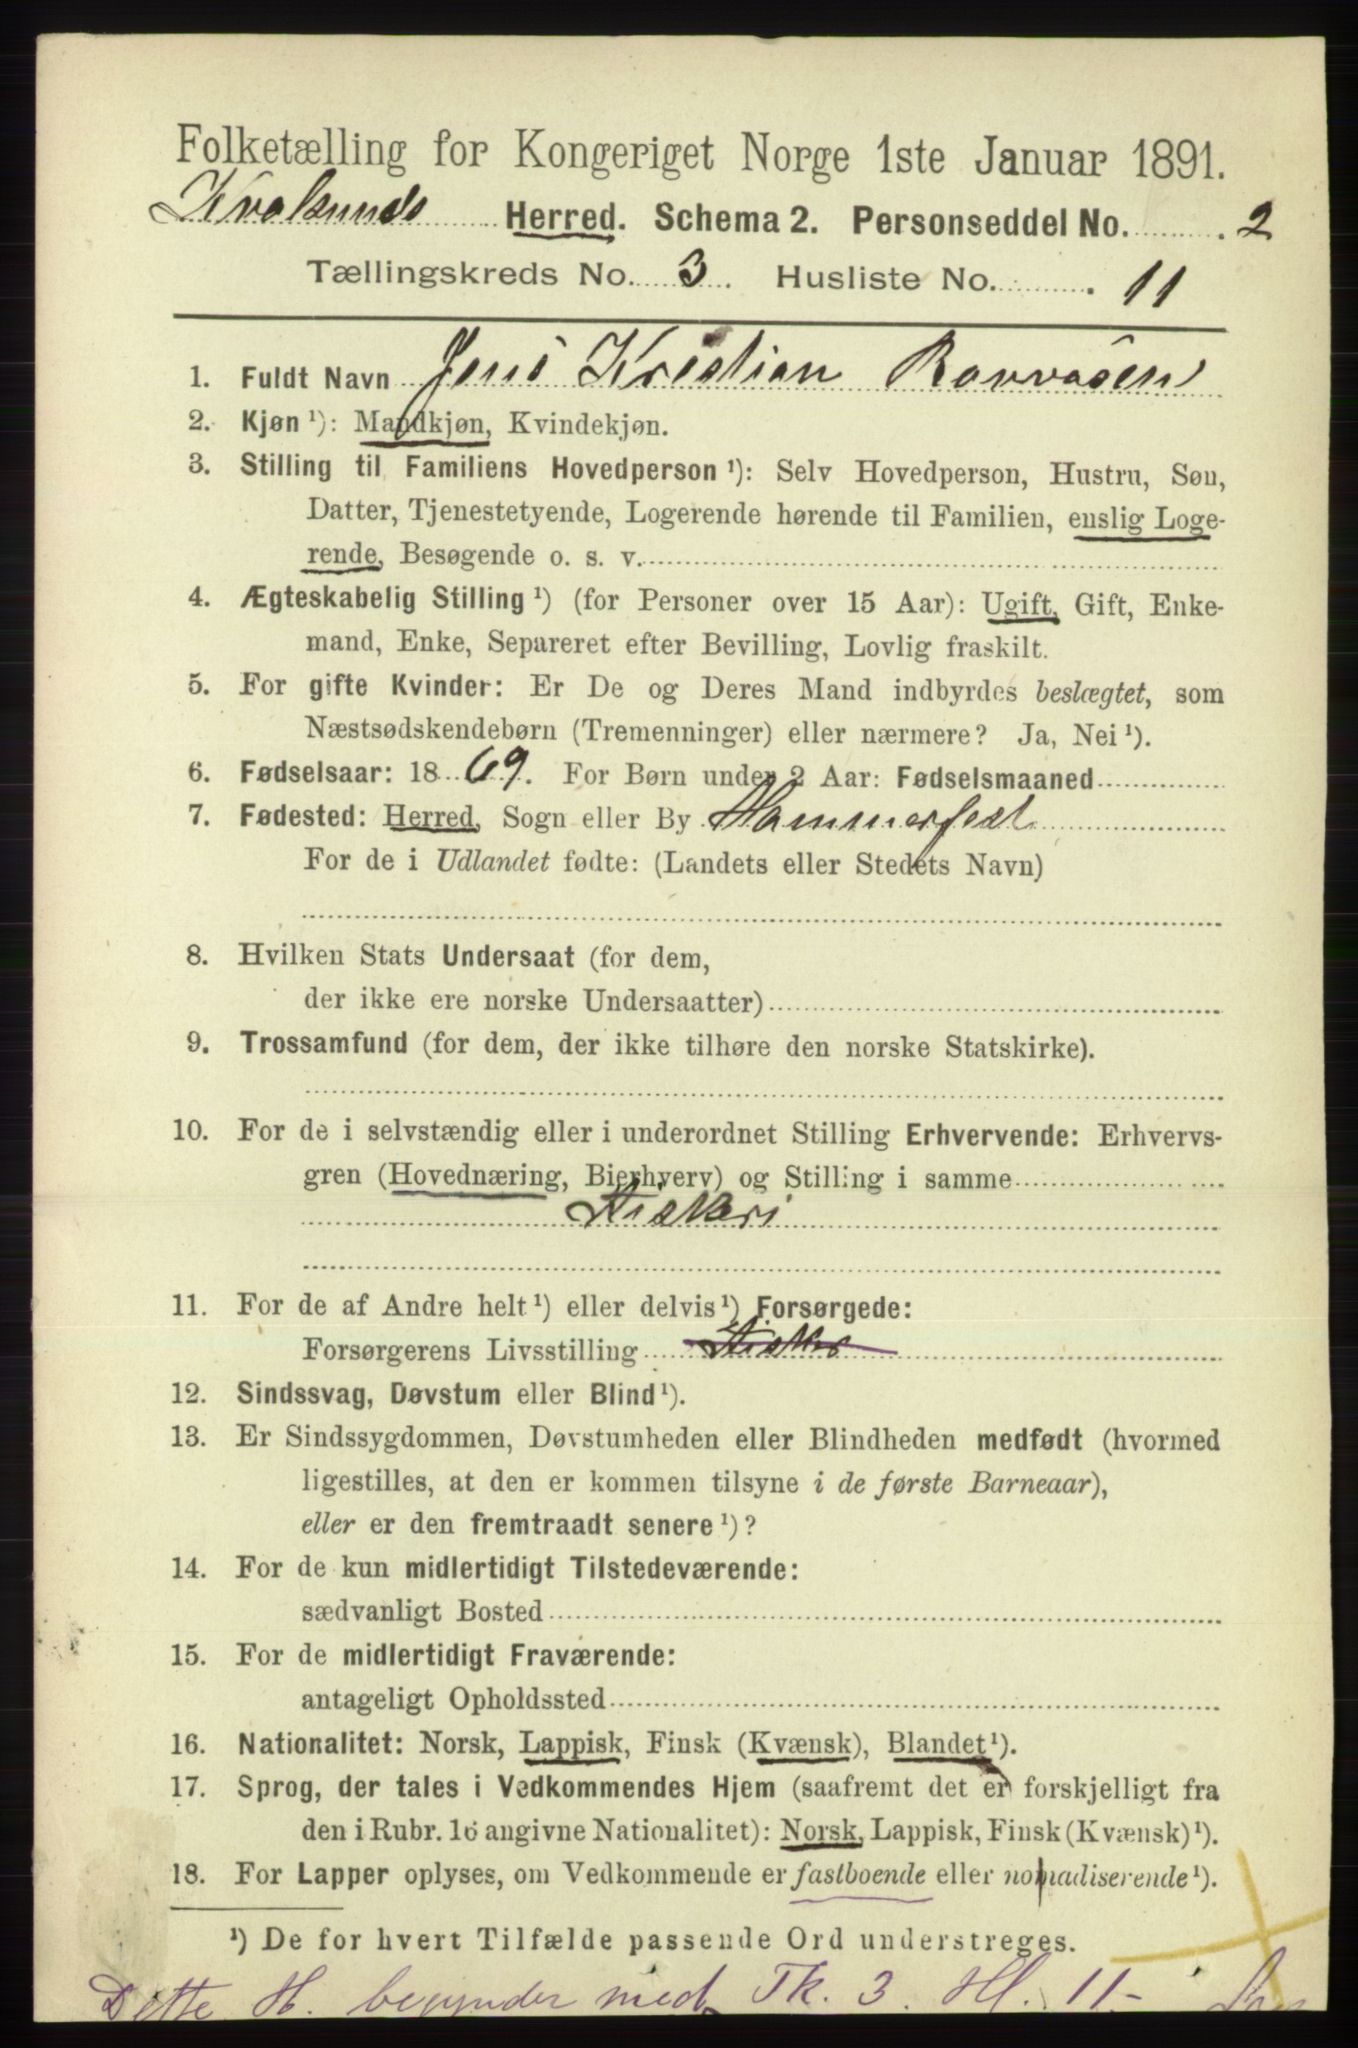 Folketælling for Kongeriget Norge 1ste Januar 1891.
Kvalsunds Herred. Schema 2. Personseddel No. 2
Tællingskreds No. 3. Husliste No. 11
1. Fuldt Navn Jens Kristian Ravvasen
2. Kjøn ¹): Mandkjøn, Kvindekjøn.
3. Stilling til Familiens Hovedperson ¹): Selv Hovedperson, Hustru, Søn,
Datter, Tjenestetyende, Logerende hørende til Familien, enslig Loge-
rende, Besøgende o. s. v.
4. Ægteskabelig Stilling ¹) (for Personer over 15 Aar): Ugift, Gift, Enke-
mand, Enke, Separeret efter Bevilling, Lovlig fraskilt.
5. For gifte Kvinder: Er De og Deres Mand indbyrdes beslægtet, som
Næstsødskendebørn (Tremenninger) eller nærmere? Ja, Nei ¹).
6. Fødselsaar: 1869. For Børn under 2 Aar: Fødselsmaaned
7. Fødested: Herred, Sogn eller By Hammerfest
For de i Udlandet fødte: (Landets eller Stedets Navn)
8. Hvilken Stats Undersaat (for dem,
der ikke ere norske Undersaatter)
9. Trossamfund (for dem, der ikke tilhøre den norske Statskirke).
10. For de i selvstændig eller i underordnet Stilling Erhvervende: Erhvervs-
gren (Hovednæring, Bierhverv) og Stilling i samme
Fiskeri
11. For de af Andre helt ¹) eller delvis ¹) Forsørgede:
Forsørgerens Livsstilling Fisker
12. Sindssvag, Døvstum eller Blind ¹).
13. Er Sindssygdommen, Døvstumheden eller Blindheden medfødt (hvormed
ligestilles, at den er kommen tilsyne i de første Barneaar),
eller er den fremtraadt senere ¹)?
14. For de kun midlertidigt Tilstedeværende:
sædvanligt Bosted
15. For de midlertidigt Fraværende:
antageligt Opholdssted
16. Nationalitet: Norsk, Lappisk, Finsk (Kvænsk), Blandet ¹).
17. Sprog, der tales i Vedkommendes Hjem (saafremt det er forskjelligt fra
den i Rubr. 16 angivne Nationalitet): Norsk, Lappisk, Finsk (Kvænsk) ¹).
18. For Lapper oplyses, om Vedkommende er fastboende eller nomadiserende ¹).
¹) De for hvert Tilfælde passende Ord understreges.
Dette H. begynder med Tk. 3. Hl. 11.-